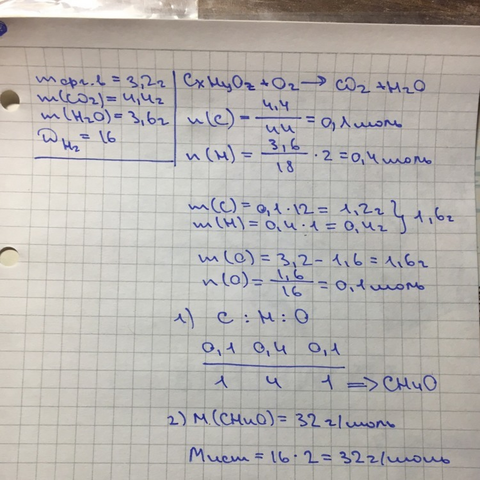 m орг.в = 3,2г
m(CO2) = 4,4г
m(H2O) = 3,6г
DH2 = 16
CxHyOz + O2 → CO2 + H2O
n(C) = 4,4/44 = 0,1 моль
n(H) = 3,6/18 · 2 = 0,4 моль
m(C) = 0,1 · 12 = 1,2г
m(H) = 0,4 · 1 = 0,4г } 1,6г
m(O) = 3,2 - 1,6 = 1,6г
n(O) = 1,6/16 = 0,1 моль
1) C : H : O
0,1 0,4 0,1
1 4 1 => CH4O
2) M(CH4O) = 32 г/моль
Mист = 16 · 2 = 32 г/моль